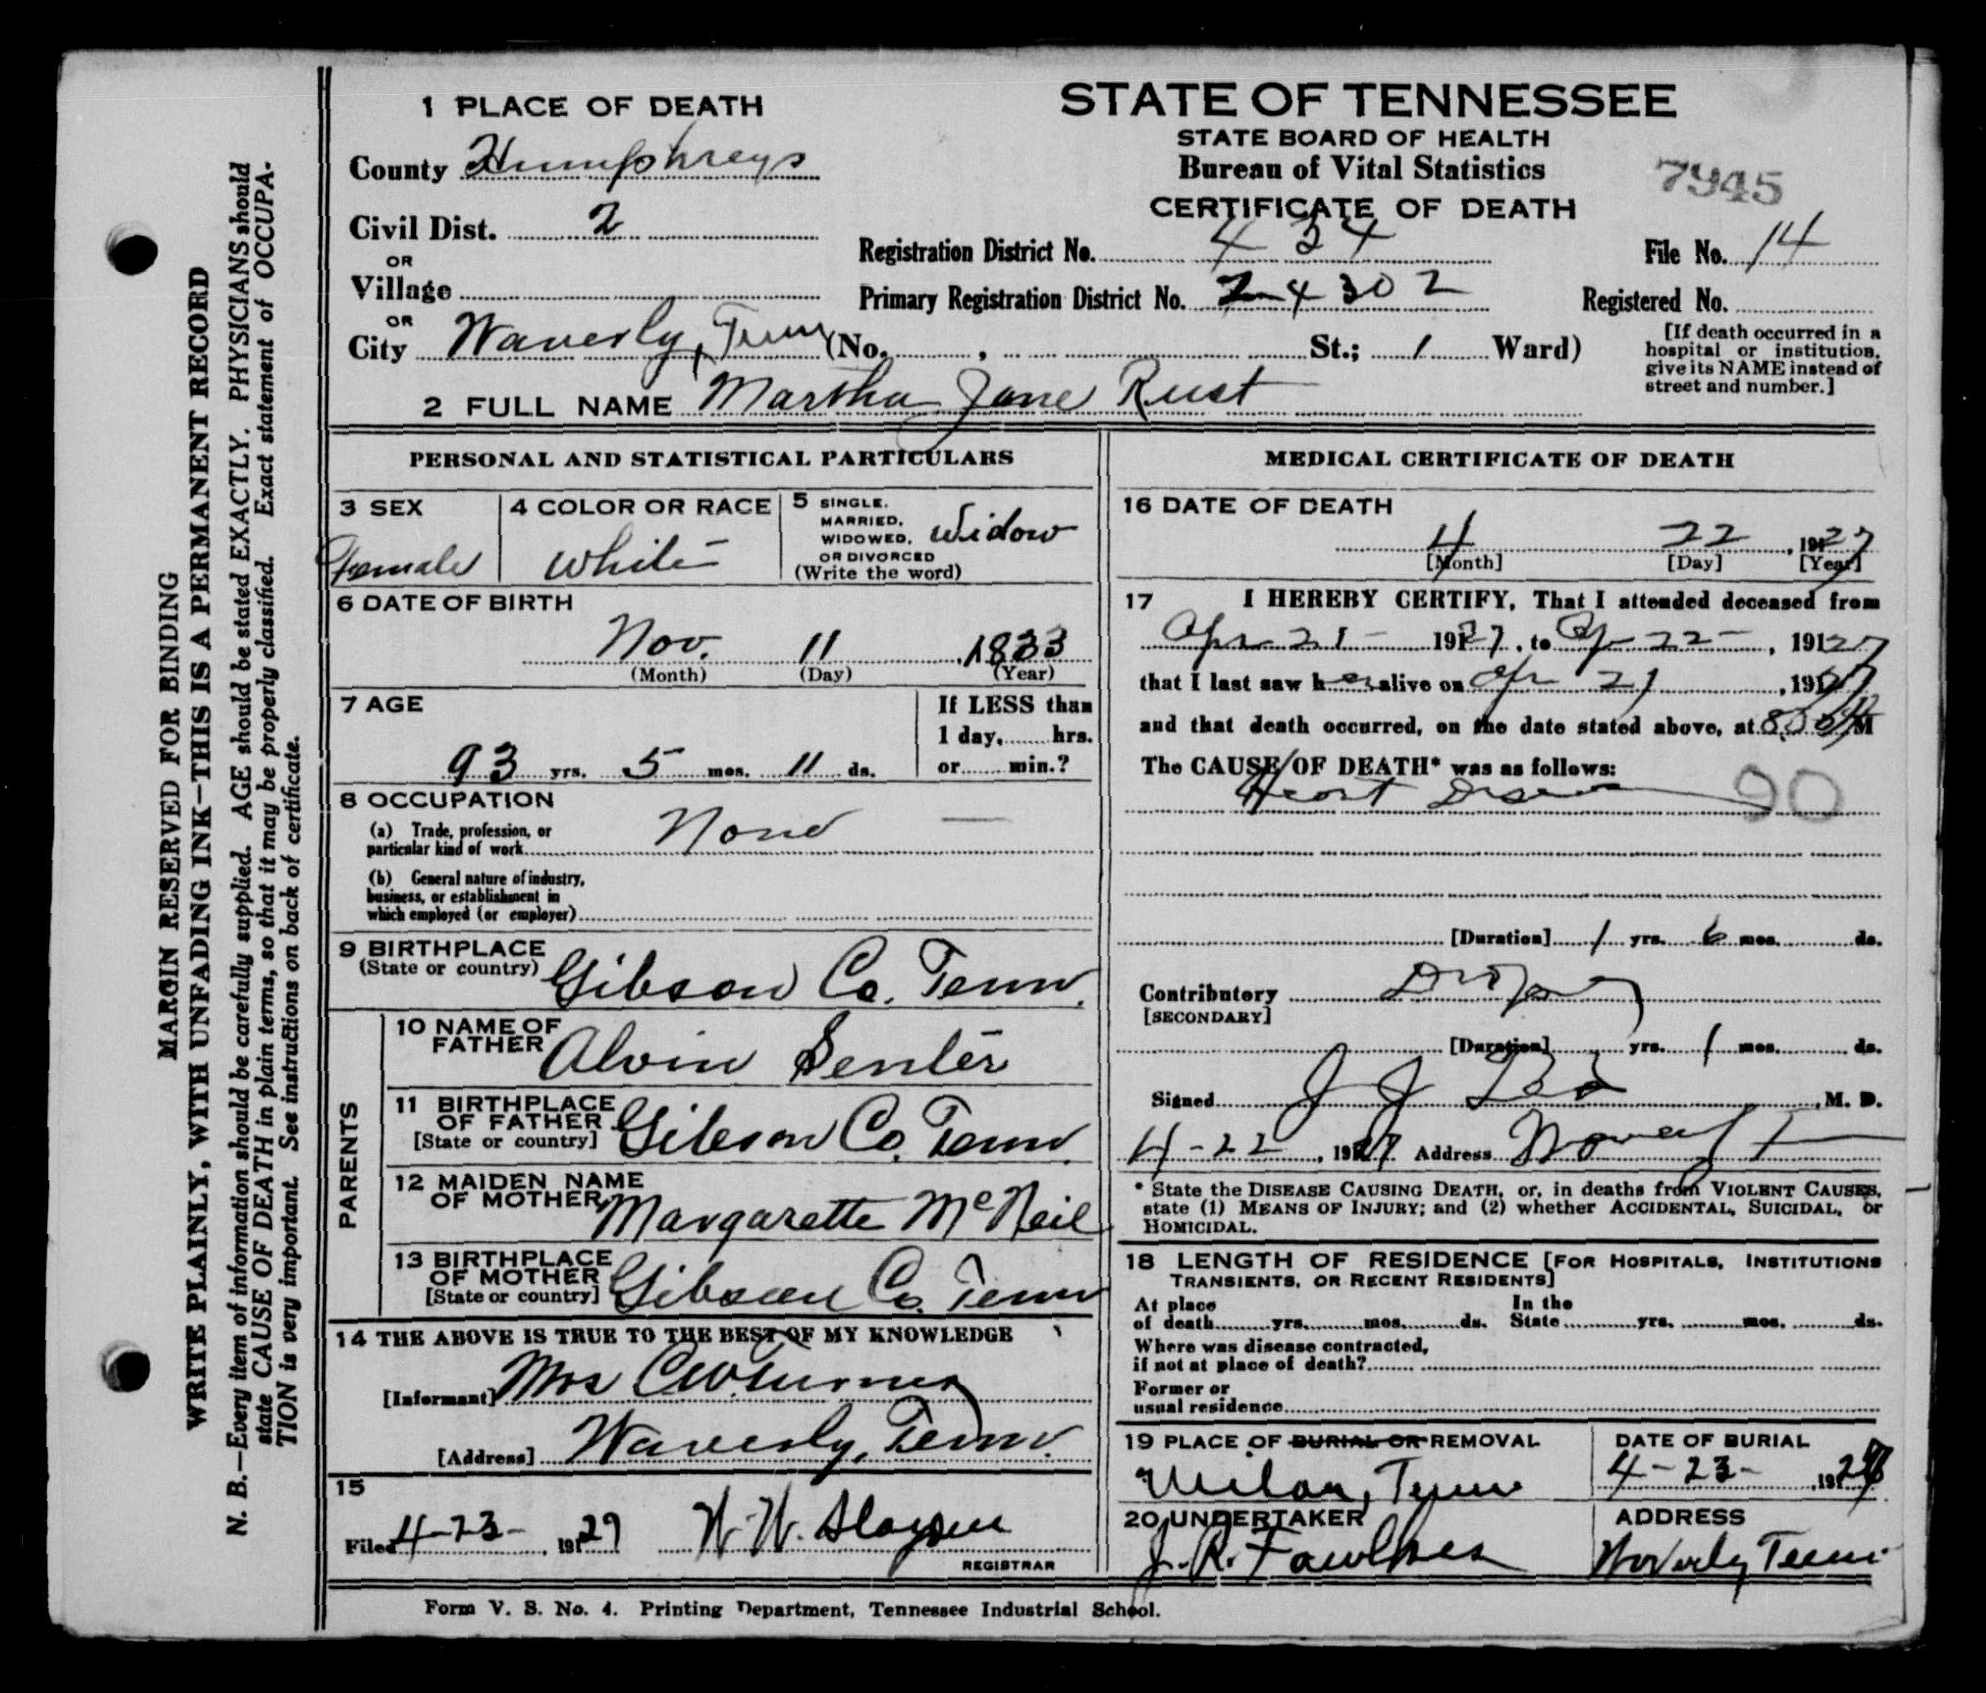 MARGIN RESERVED FOR BINDING
WRITE PLAINLY, WITH UNFADING INK—THIS IS A PERMANENT RECORD
N. B.—Every item of information should be carefully supplied. AGE should be stated EXACTLY. PHYSICIANS should
state CAUSE OF DEATH in plain terms, so that it may be properly classified. Exact statement of OCCUPA-
TION is very important. See instructions on back of certificate.
1 PLACE OF DEATH
County Humphreys
Civil Dist. 2
OR
Village
OR
City Waverly, Tenn (No. , St.; 1 Ward)
STATE OF TENNESSEE
STATE BOARD OF HEALTH
Bureau of Vital Statistics
CERTIFICATE OF DEATH
7945
Registration District No. 434
File No. 14
Primary Registration District No. 24302
Registered No.
[If death occurred in a
hospital or institution,
give its NAME instead of
street and number.]
2 FULL NAME Martha Jane Rust
PERSONAL AND STATISTICAL PARTICULARS
3 SEX
Female
4 COLOR OR RACE
White
5 SINGLE,
MARRIED,
WIDOWED,
OR DIVORCED
(Write the word)
Widow
6 DATE OF BIRTH
Nov. 11, 1833
(Month) (Day) (Year)
7 AGE
93 yrs. 5 mos. 11 ds.
If LESS than
1 day, hrs.
or min.?
8 OCCUPATION
(a) Trade, profession, or
particular kind of work None —
(b) General nature of industry,
business, or establishment in
which employed (or employer)
9 BIRTHPLACE
(State or country) Gibson Co. Tenn.
PARENTS
10 NAME OF
FATHER Alvin Senter
11 BIRTHPLACE
OF FATHER
[State or country] Gibson Co. Tenn.
12 MAIDEN NAME
OF MOTHER Margarette McNeil
13 BIRTHPLACE
OF MOTHER
[State or country] Gibson Co. Tenn
14 THE ABOVE IS TRUE TO THE BEST OF MY KNOWLEDGE
[Informant] Mrs C W Turner
[Address] Waverly, Tenn.
15
Filed 4-23-, 1927 W. W. Slayden
REGISTRAR
MEDICAL CERTIFICATE OF DEATH
16 DATE OF DEATH
4 22, 1927
[Month] [Day] [Year]
17 I HEREBY CERTIFY, That I attended deceased from
Apr 21- 1927, to Ap 22-, 1927
that I last saw her alive on Apr 21, 1927
and that death occurred, on the date stated above, at M
The CAUSE OF DEATH* was as follows:
Heart Disease
90
[Duration] 1 yrs. 6 mos. ds.
Contributory Dropsy
[SECONDARY]
[Duration] yrs. 1 mos. ds.
Signed J J , M. D.
4-22, 1927 Address Waverly T
* State the DISEASE CAUSING DEATH, or, in deaths from VIOLENT CAUSES,
state (1) MEANS OF INJURY; and (2) whether ACCIDENTAL, SUICIDAL, or
HOMICIDAL.
18 LENGTH OF RESIDENCE [FOR HOSPITALS, INSTITUTIONS
TRANSIENTS, OR RECENT RESIDENTS]
At place
of death yrs. mos. ds.
In the
State yrs. mos. ds.
Where was disease contracted,
if not at place of death?
Former or
usual residence
19 PLACE OF BURIAL OR REMOVAL
Milan, Tenn
DATE OF BURIAL
4-23-, 1927
20 UNDERTAKER
J. R. Fawlkes
ADDRESS
Waverly Tenn
Form V. S. No. 4. Printing Department, Tennessee Industrial School.